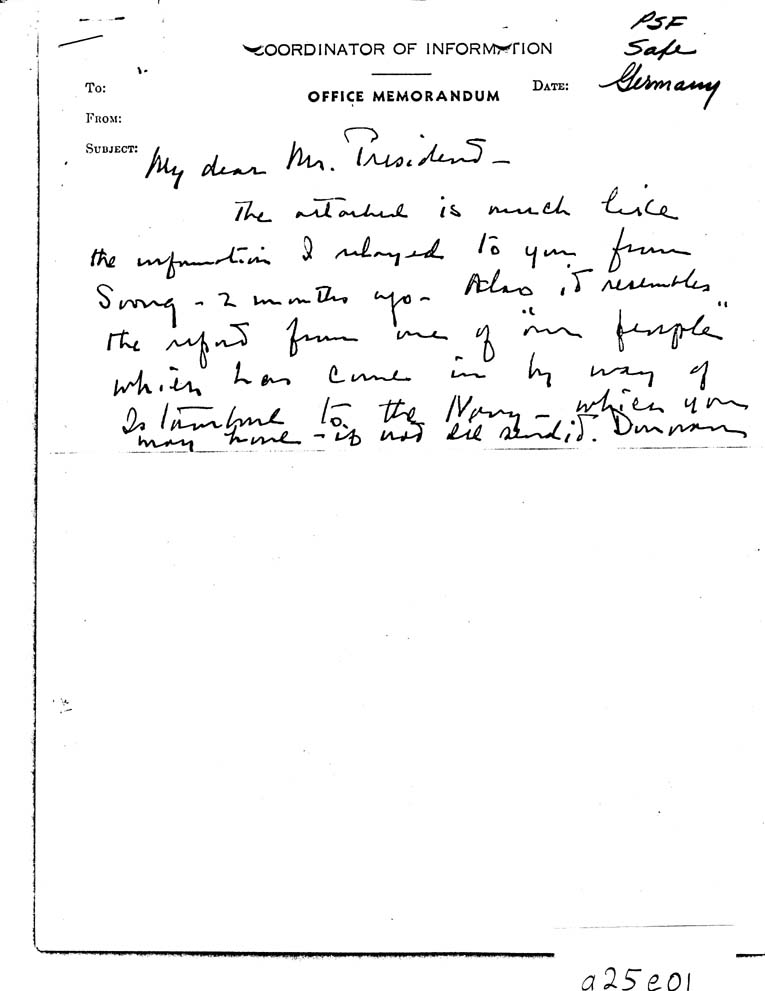 PSF
Safe
Germany
COORDINATOR OF INFORMATION
OFFICE MEMORANDUM
TO:
DATE:
FROM:
SUBJECT:
My dear Mr. President –
The attached is much like
the information I relayed to you from
Soong – 2 months ago – Also it resembles
the report from one of "our people"
which has come in by way of
Istanbul to the Navy – which you
may have – if not I'll send it. Donovan
a25e01